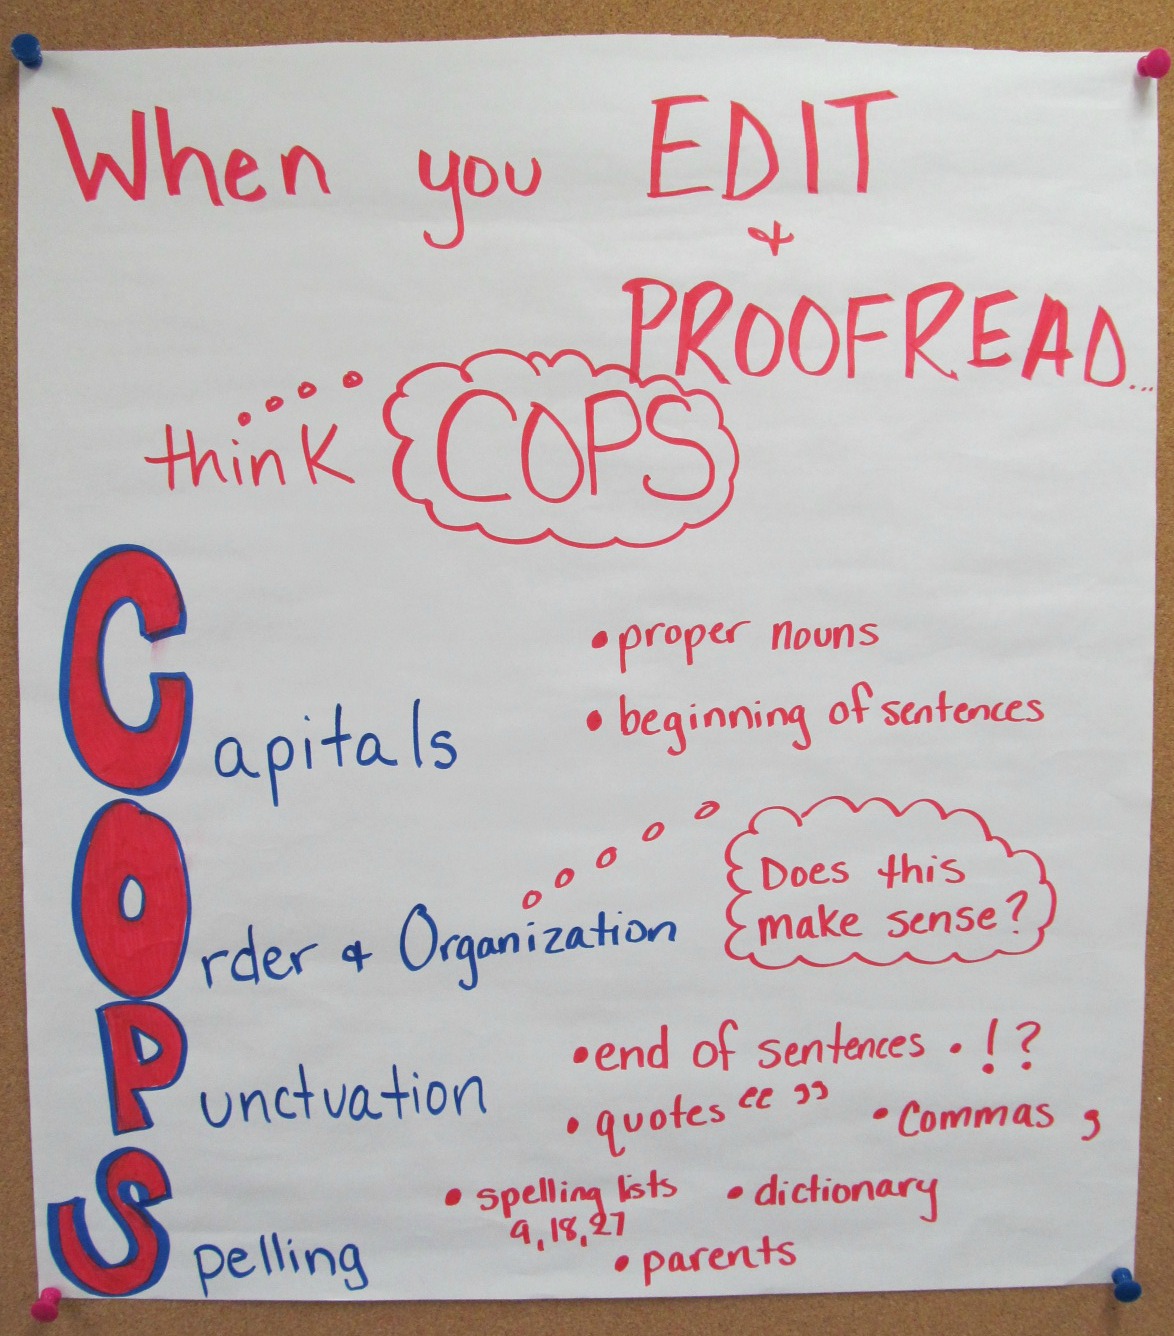 When you EDIT
&
PROOFREAD...
think COPS
Capitals
• proper nouns
• beginning of sentences
Order & Organization
Does this
make sense?
Punctuation
• end of sentences . ! ?
• quotes “ ” • Commas ,
Spelling
• spelling lists • dictionary
9, 18, 27
• parents